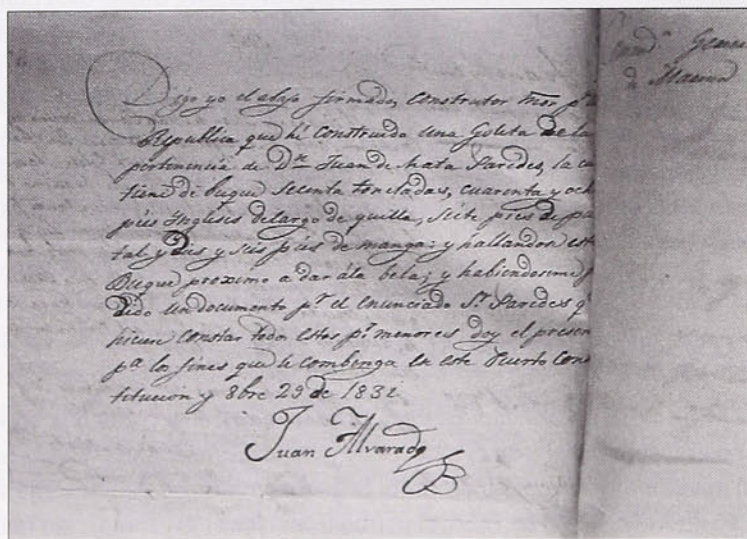 Digo yo el abajo firmado, Construtor mor pr la
Republica que hé Construido una Goleta de la
pertinencia de Dn Juan de Mata Paredes, la cu
tiene de buque Secenta toneladas, cuarenta y och
piés Ynglesis delargo de quilla, Seite pies de pu
tal y dies y seis piés de manga: y hallandose est
Buque proximo a dar ála bela; y habiendoseme p
dido un documento pr el enunciado Sr Paredes q
hiciese Constar todos estos pr menores doy el presen
pa los fines que le combenga En este Puerto Cons
titucion y 8bre 29 de 1832
Juan Alvarado
Comda General
de Marina